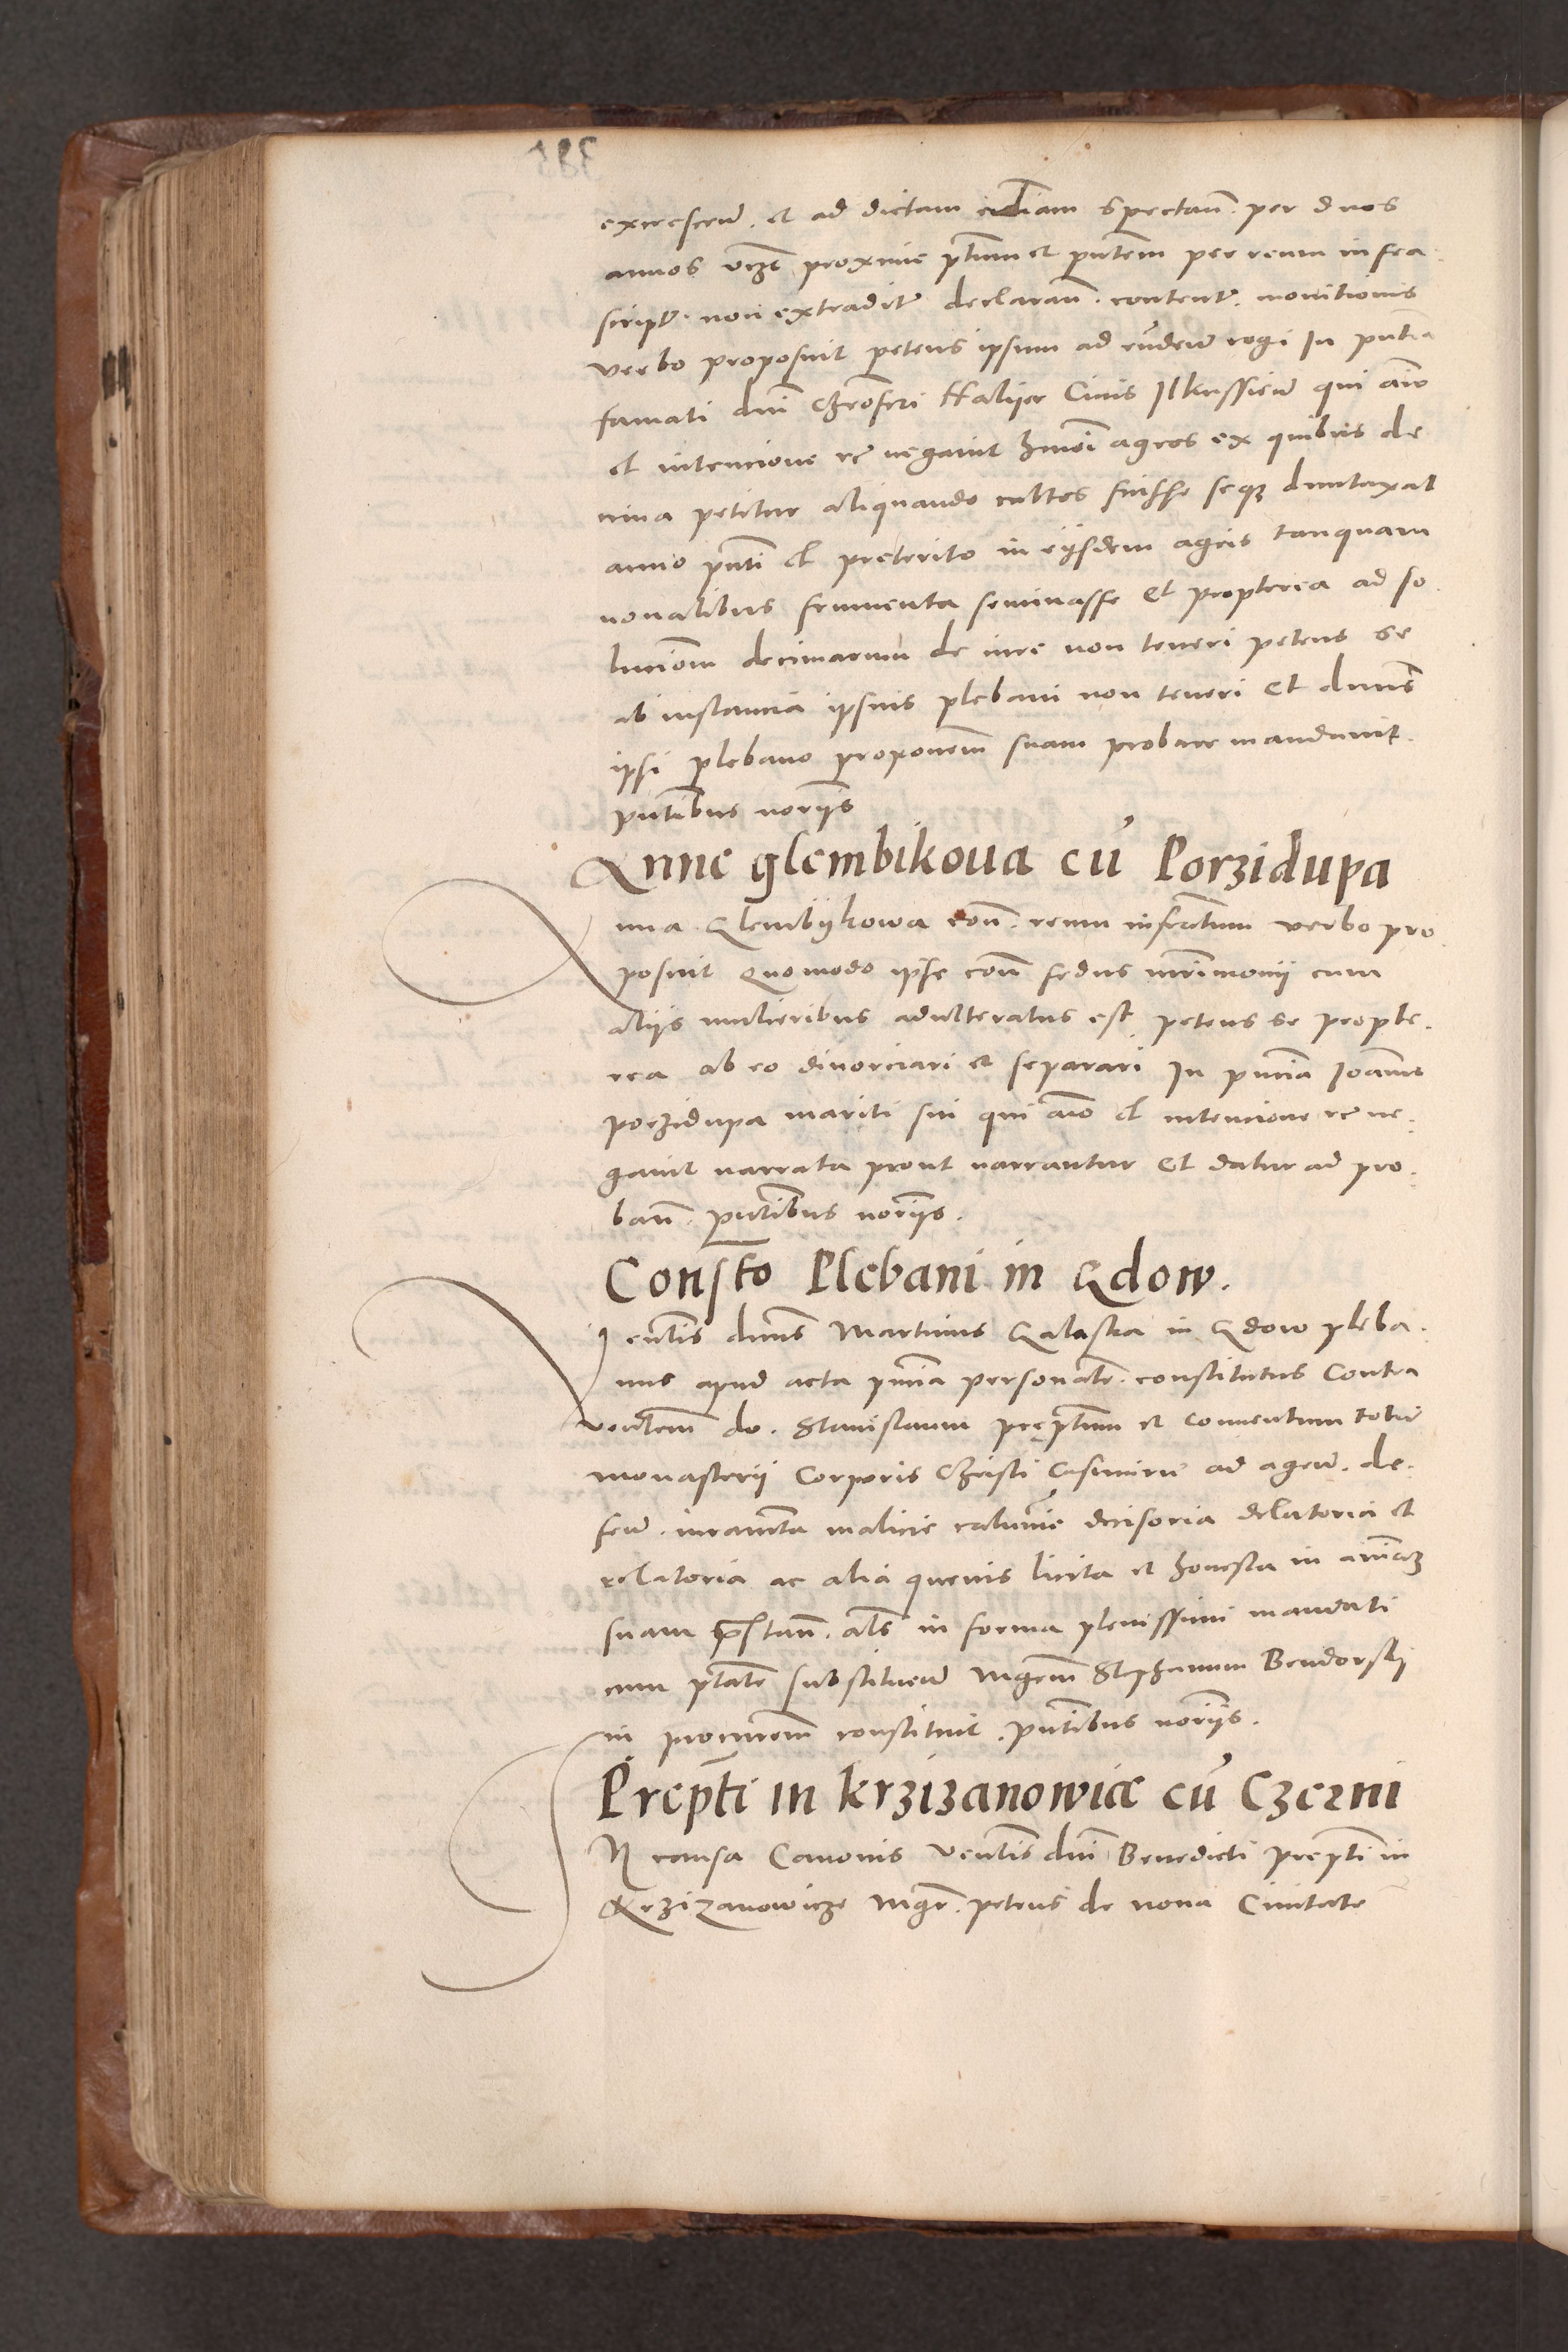 excrescen. et ad dictam eccliam spectan. per duos
annos vizt proxime ptitum et pntem per reum infra
script. non extradit declaran. content. monitionis
verbo proposuit petens ipsum ad rnden cogi In pntia
famati dni Cristoferi Kaliser Civis Ilkussien qui aio
et intencione re negavit hmoi agros ex quibus de
cima petitur aliquando cultos fuisse seq3 duntaxat
anno pnti et preterito in eijsdem agris tanquam
novalibus frumenta seminasse Et propterea ad so
lucionem decimarum de iure non teneri petens se
ab instancia ipsius plebani non teneri Et dnus
ipsi plebano proponem suam probare mandavit.
pntibus noriis
Anne glembikova cū Porzidupa
nna Glembijkowa con. reum infratum verbo pro
posuit Quomodo ipse con fedus mrimonij cum
aliis mulieribus adulteratus est petens se propte.
rea ab eo divorciari et separari In pncia Joannis
porzidupa mariti sui qui aio et intencione re ne.
gavit narrata prout narrantur Et datur ad pro.
ban. pntibus noriis.
Consto Plebani in Gdow.
enlis dnus Martinus Galaska in Gdow pleba.
nus apud acta pncia personalr. constitutus Contra
venlem do. Stanislaum preptum et Conventum totū
monasterii Corporis Christi Casimirie ad agen. de.
fen. iuramta malicie calumnie decisoria delatoria et
relatoria ac alia quevis licita et honesta in aniam
suam prestan. als in forma plenissimi mandati
cum ptate substituen Mgrm Stephanum Bendorskj
in procurem constituit. pntibus noriis.
Prepti in krzizanowice cū Czerni
N causa Canonis Venlis dni Benedicti prepti in
Krzizanowicze Mgr. petrus de nova Civitate